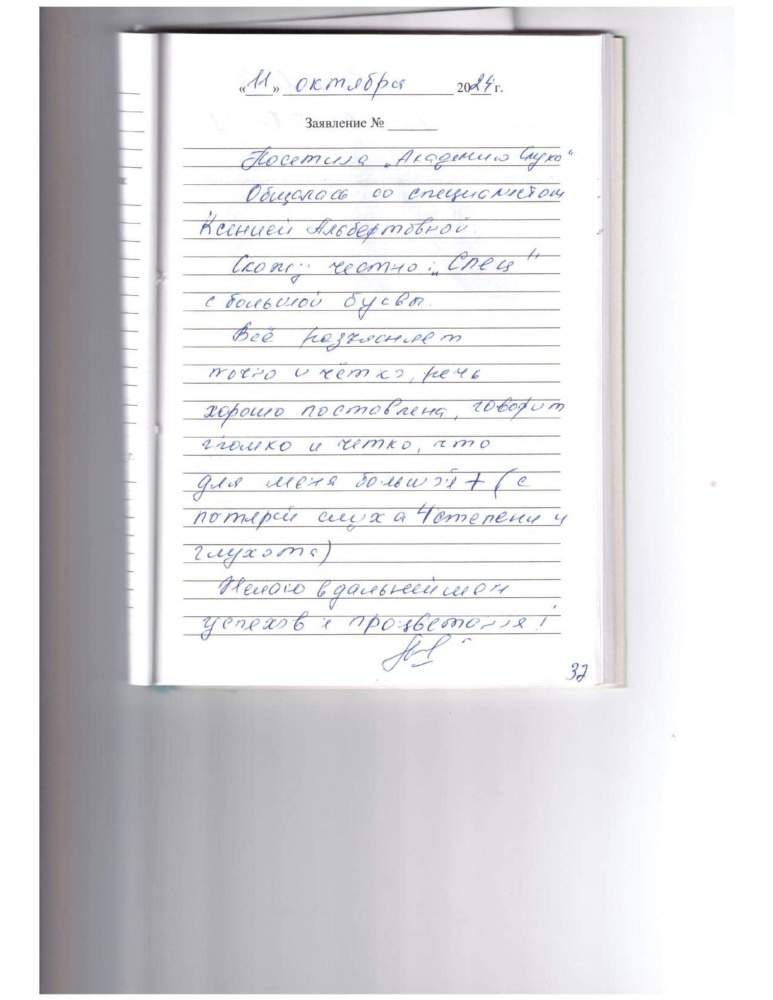 «11» октября 2024 г.
Заявление №
Посетила „Академию Слуха"
Общалась со специалистом
Ксенией Альбертовной.
Скажу честно: „Спец"
с большой буквы.
Всё разъясняет
точно и чётко, речь
хорошо поставлена, говорит
громко и четко, что
для меня большой + (с
потерей слуха 4 степени и
глухота)
Желаю в дальнейшем
успехов и процветания!
32